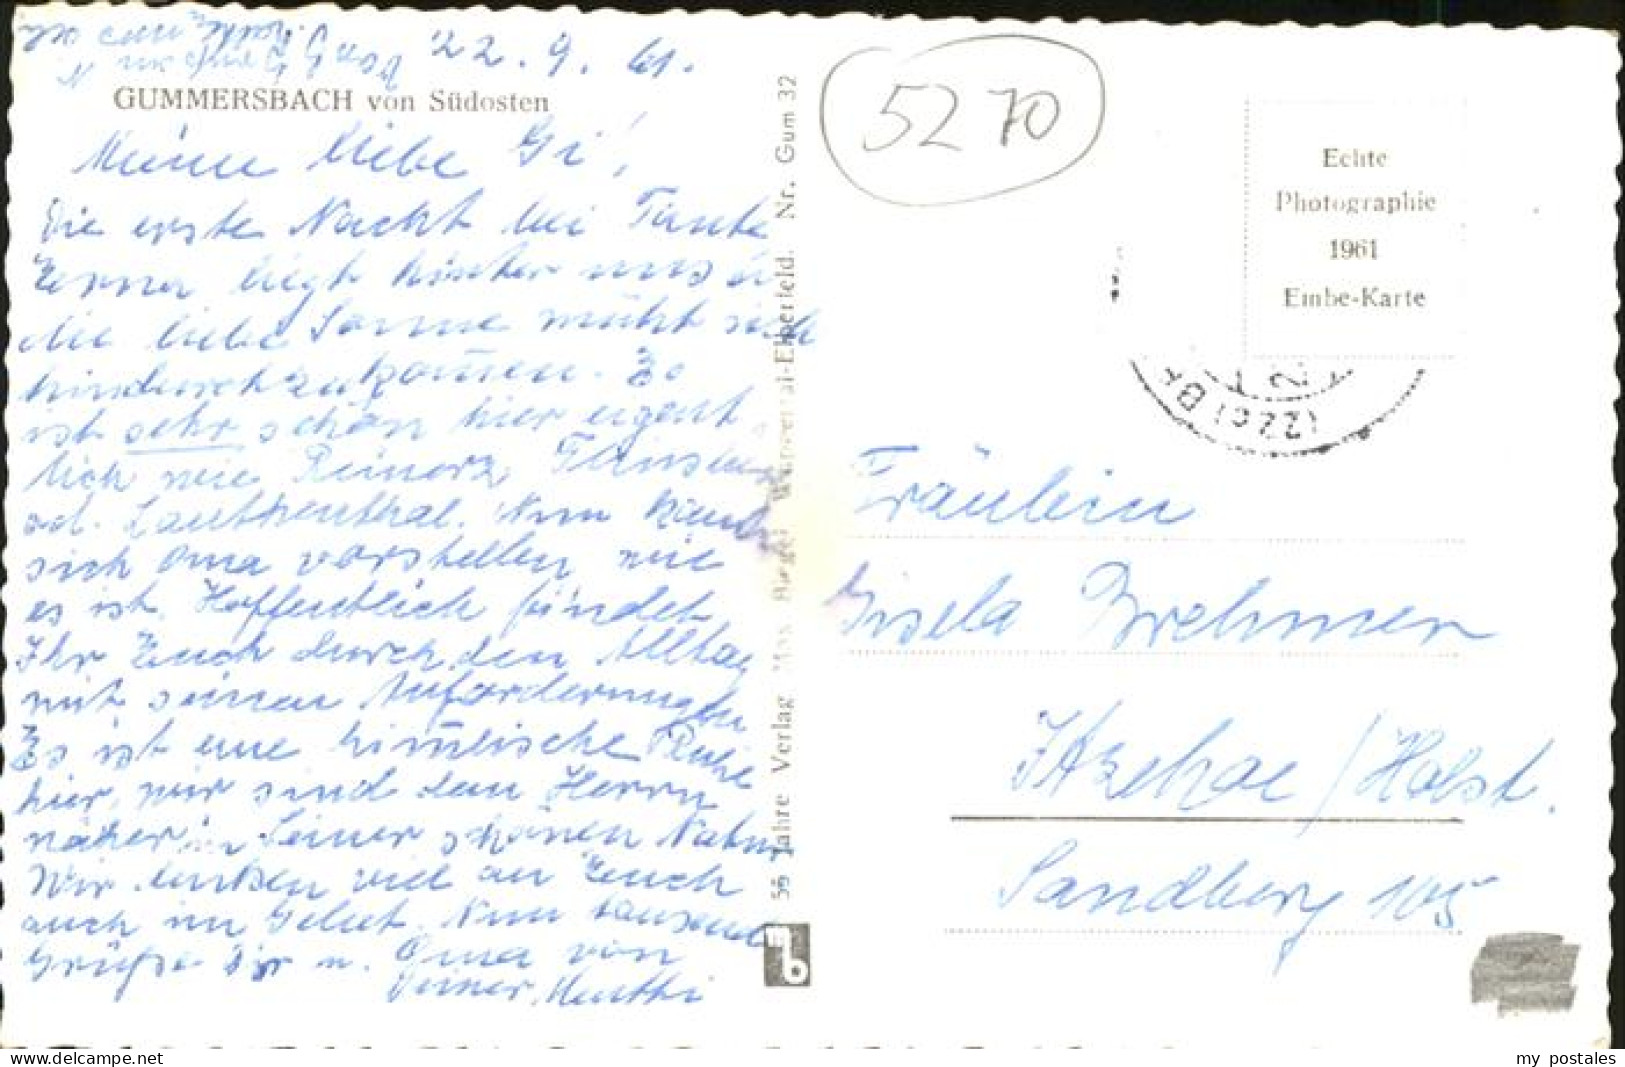 22. 9. 61.
GUMMERSBACH von Südosten
Meine liebe Gi!
Die erste Nacht bei Tante
Erna liegt hinter uns u.
die liebe Sonne müht sich
hindurchzukommen. Es
ist sehr schön hier eigent
lich wie Reinerz
od. Lautenthal. Nun kann
sich Oma vorstellen wie
es ist. Hoffentlich findet
Ihr Euch durch den Alltag
mit seinen Anforderungen
Es ist eine himmlische Ruhe
hier, wir sind dem Herrn
näher in Seiner schönen Natur
Wir denken viel an Euch
auch im Gebet. Nun tausend
Grüße Dir u. Oma von
Deiner Mutti
55 Jahre Verlag Wuppertal-Elberfeld. Nr. Gum 32
5270
Echte
Photographie
1961
Embe-Karte
(22c) B
Fräulein
Gisela Brehmer
Itzehoe / Holst.
Sandberg 105
my postales
delcampe.net